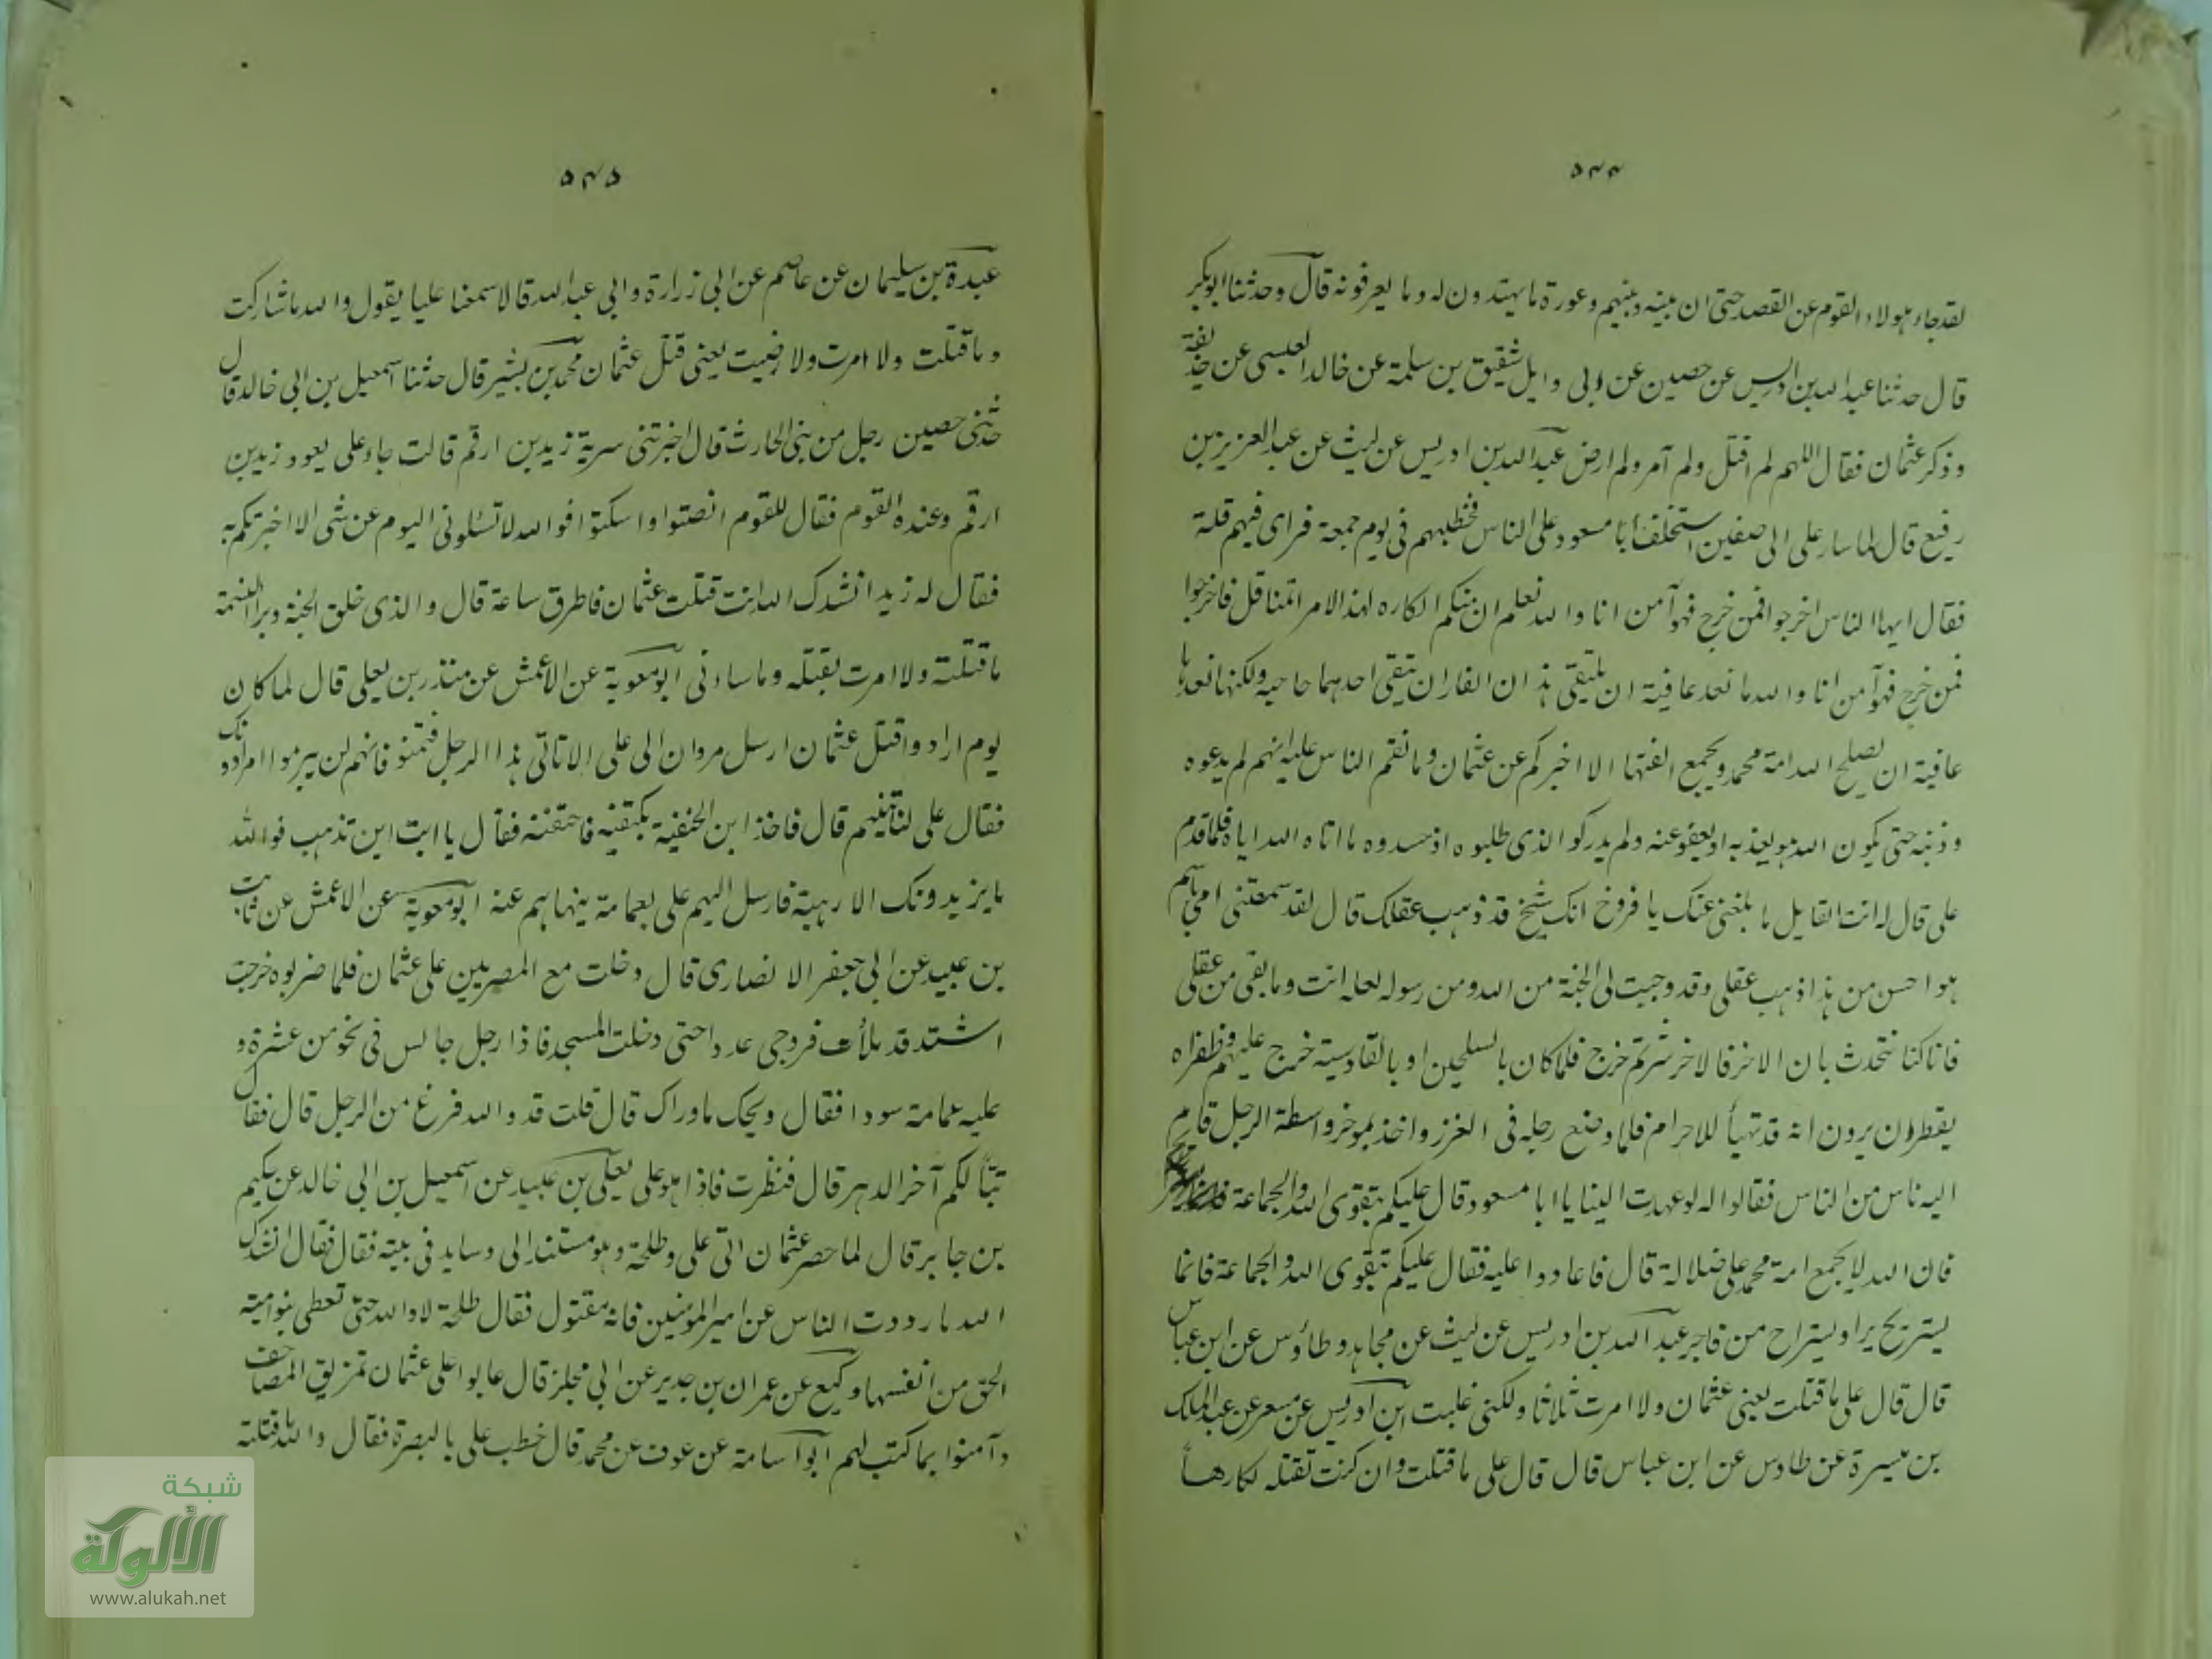 ٥٤٤
لقد جار هولاء القوم عن القصد حتى ان بينه وبينهم وعورة ما يهتدون له وما يعرفونه قال وحدثنا ابو بكر
قال حدثنا عبد الله بن ادريس عن حصين عن ابى وايل شقيق بن سلمة عن خالد العبسى عن حذيفة
وذكر عثمان فقال اللهم لم اقتل ولم آمر ولم ارض عبد الله بن ادريس عن ليث عن عبد العزيز بن
رفيع قال لما سار على الى صفين استخلف ابا مسعود على الناس فخطبهم فى يوم جمعة فراى فيهم قلة
فقال ايها الناس اخرجوا فمن خرج فهو آمن انا والله نعلم ان منكم الكاره لهذا الامر المتثاقل فاخرجوا
فمن خرج فهو آمن انا والله ما نعد عافية ان يلتقى هذان الغاران يتقى احدهما صاحبه ولكنها نعدها
عافية ان يصلح الله امة محمد ويجمع الفتها الا اخبركم عن عثمان وما نقم الناس عليه انهم لم يدعوه
وذنبه حتى يكون الله هو يعذبه او يعفو عنه ولم يدركوا الذى طلبوه اذ حسدوه ما اتاه الله اياه فلما قدم
على قال له انت القايل ما بلغنى عنك يا فروخ انك شيخ قد ذهب عقلك قال لقد سمتنى امى باسم
هو احسن من هذا اذهب عقلى وقد وجبت لى الجنة من الله ومن رسوله لعله انت وما بقى من عقلى
فانا كنا نتحدث بان الاخر فالاخر شر ثم خرج فلما كان بالسلحين او بالقادسية خرج عليهم وظفراه
يقطران يرون انه قد تهيأ للاحرام فلما وضع رجله فى الغرز واخذ بموخر واسطة الرحل قام
اليه ناس من الناس فقالوا له لو عهدت الينا يا ابا مسعود قال عليكم بتقوى الله والجماعة
فان الله لا يجمع امة محمد على ضلالة قال فاعادوا عليه فقال عليكم بتقوى الله والجماعة فانما
يستريح بر او يستراح من فاجر عبد الله بن ادريس عن ليث عن مجاهد وطاؤس عن ابن عباس
قال قال على ما قتلت يعنى عثمان ولا امرت ثلاثا ولكنى غلبت ابن ادريس عن مسعر عن عبد الملك
بن ميسرة عن طاوس عن ابن عباس قال قال على ما قتلت وان كنت لقتله لكارهاً
٥٤٥
عبدة بن سليمان عن عاصم عن ابى زرارة وابى عبد الله قالا سمعنا عليا يقول والله ما شاركت
وما قتلت ولا امرت ولا رضيت يعنى قتل عثمان محمد بن بشير قال حدثنا اسمعيل بن ابى خالد قال
حدثنى حصين رجل من بنى الحارث قال اخبرتنى سرية زيد بن ارقم قالت جاء على يعود زيد بن
ارقم وعنده القوم فقال للقوم انصتوا واسكتوا فوالله لا تسئلونى اليوم عن شى الا اخبرتكم به
فقال له زيد انشدك الله انت قتلت عثمان فاطرق ساعة قال والذى خلق الجنة وبرا النسمة
ما قتلته ولا امرت بقتله وما ساءنى ابو معوية عن الاعمش عن منذر بن يعلى قال لما كان
يوم ارادوا قتل عثمان ارسل مروان الى على الا تاتى هذا الرجل فتمنعه فانهم لن يبرموا امرا دونك
فقال على لنأتينهم قال فاخذ ابن الحنفية بكتفيه فاحتضنه فقال يا ابت اين تذهب فوالله
ما يزيدونك الا رهبة فارسل اليهم على بعمامة ينهاهم عنه ابو معوية عن الاعمش عن ثابت
بن عبيد عن ابى جعفر الانصارى قال دخلت مع المصريين على عثمان فلما ضربوه خرجت
اشتد قد ملأت فروجى عدوا حتى دخلت المسجد فاذا رجل جالس فى نحو من عشرة و
عليه عمامة سودا فقال ويحك ما وراك قال قلت قد والله فرغ من الرجل قال فقال
تبًا لكم آخر الدهر قال فنظرت فاذا هو على يعلى بن عبيد عن اسمعيل بن ابى خالد عن حكيم
بن جابر قال لما حصر عثمان اتى على وطلحة وهو مستند الى وسايد فى بيته فقال فقال انشدك
الله ما رددت الناس عن امير المومنين فانه مقتول فقال طلحة لا والله حتى تعطى بنو امية
الحق من انفسها وكيع عن عمران بن حدير عن ابى مجلز قال عابوا على عثمان تمزيق المصاحف
وآمنوا بما كتب لهم ابو اسامة عن عوف عن محمد قال خطب على بالبصرة فقال والله ما قتلته
شبكة
الألوكة
www.alukah.net